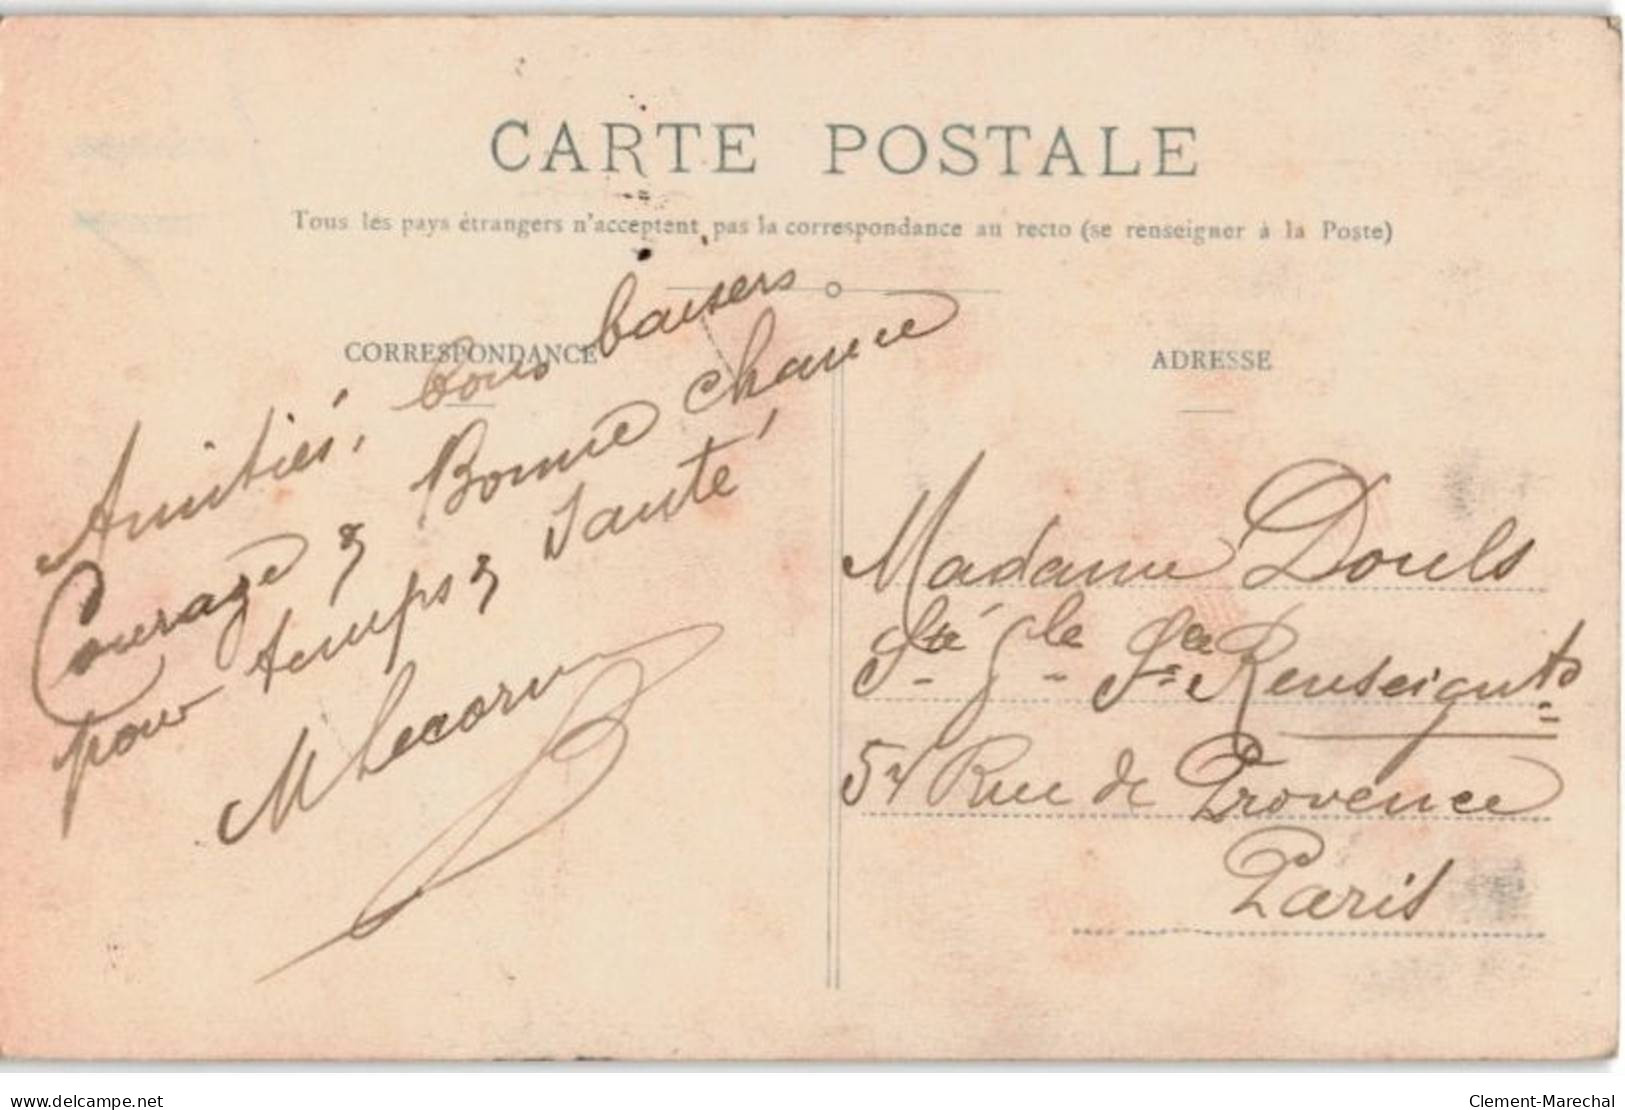 CARTE POSTALE
Tous les pays étrangers n'acceptent pas la correspondance au recto (se renseigner à la Poste)
CORRESPONDANCE
ADRESSE
Amitiés, bons baisers
Courage & Bonne chance
pour temps & Santé
M Lecorn
Madame Douls
Sté Gle Sce Renseignts
54 Rue de Provence
Paris
www.delcampe.net
Clement-Marechal